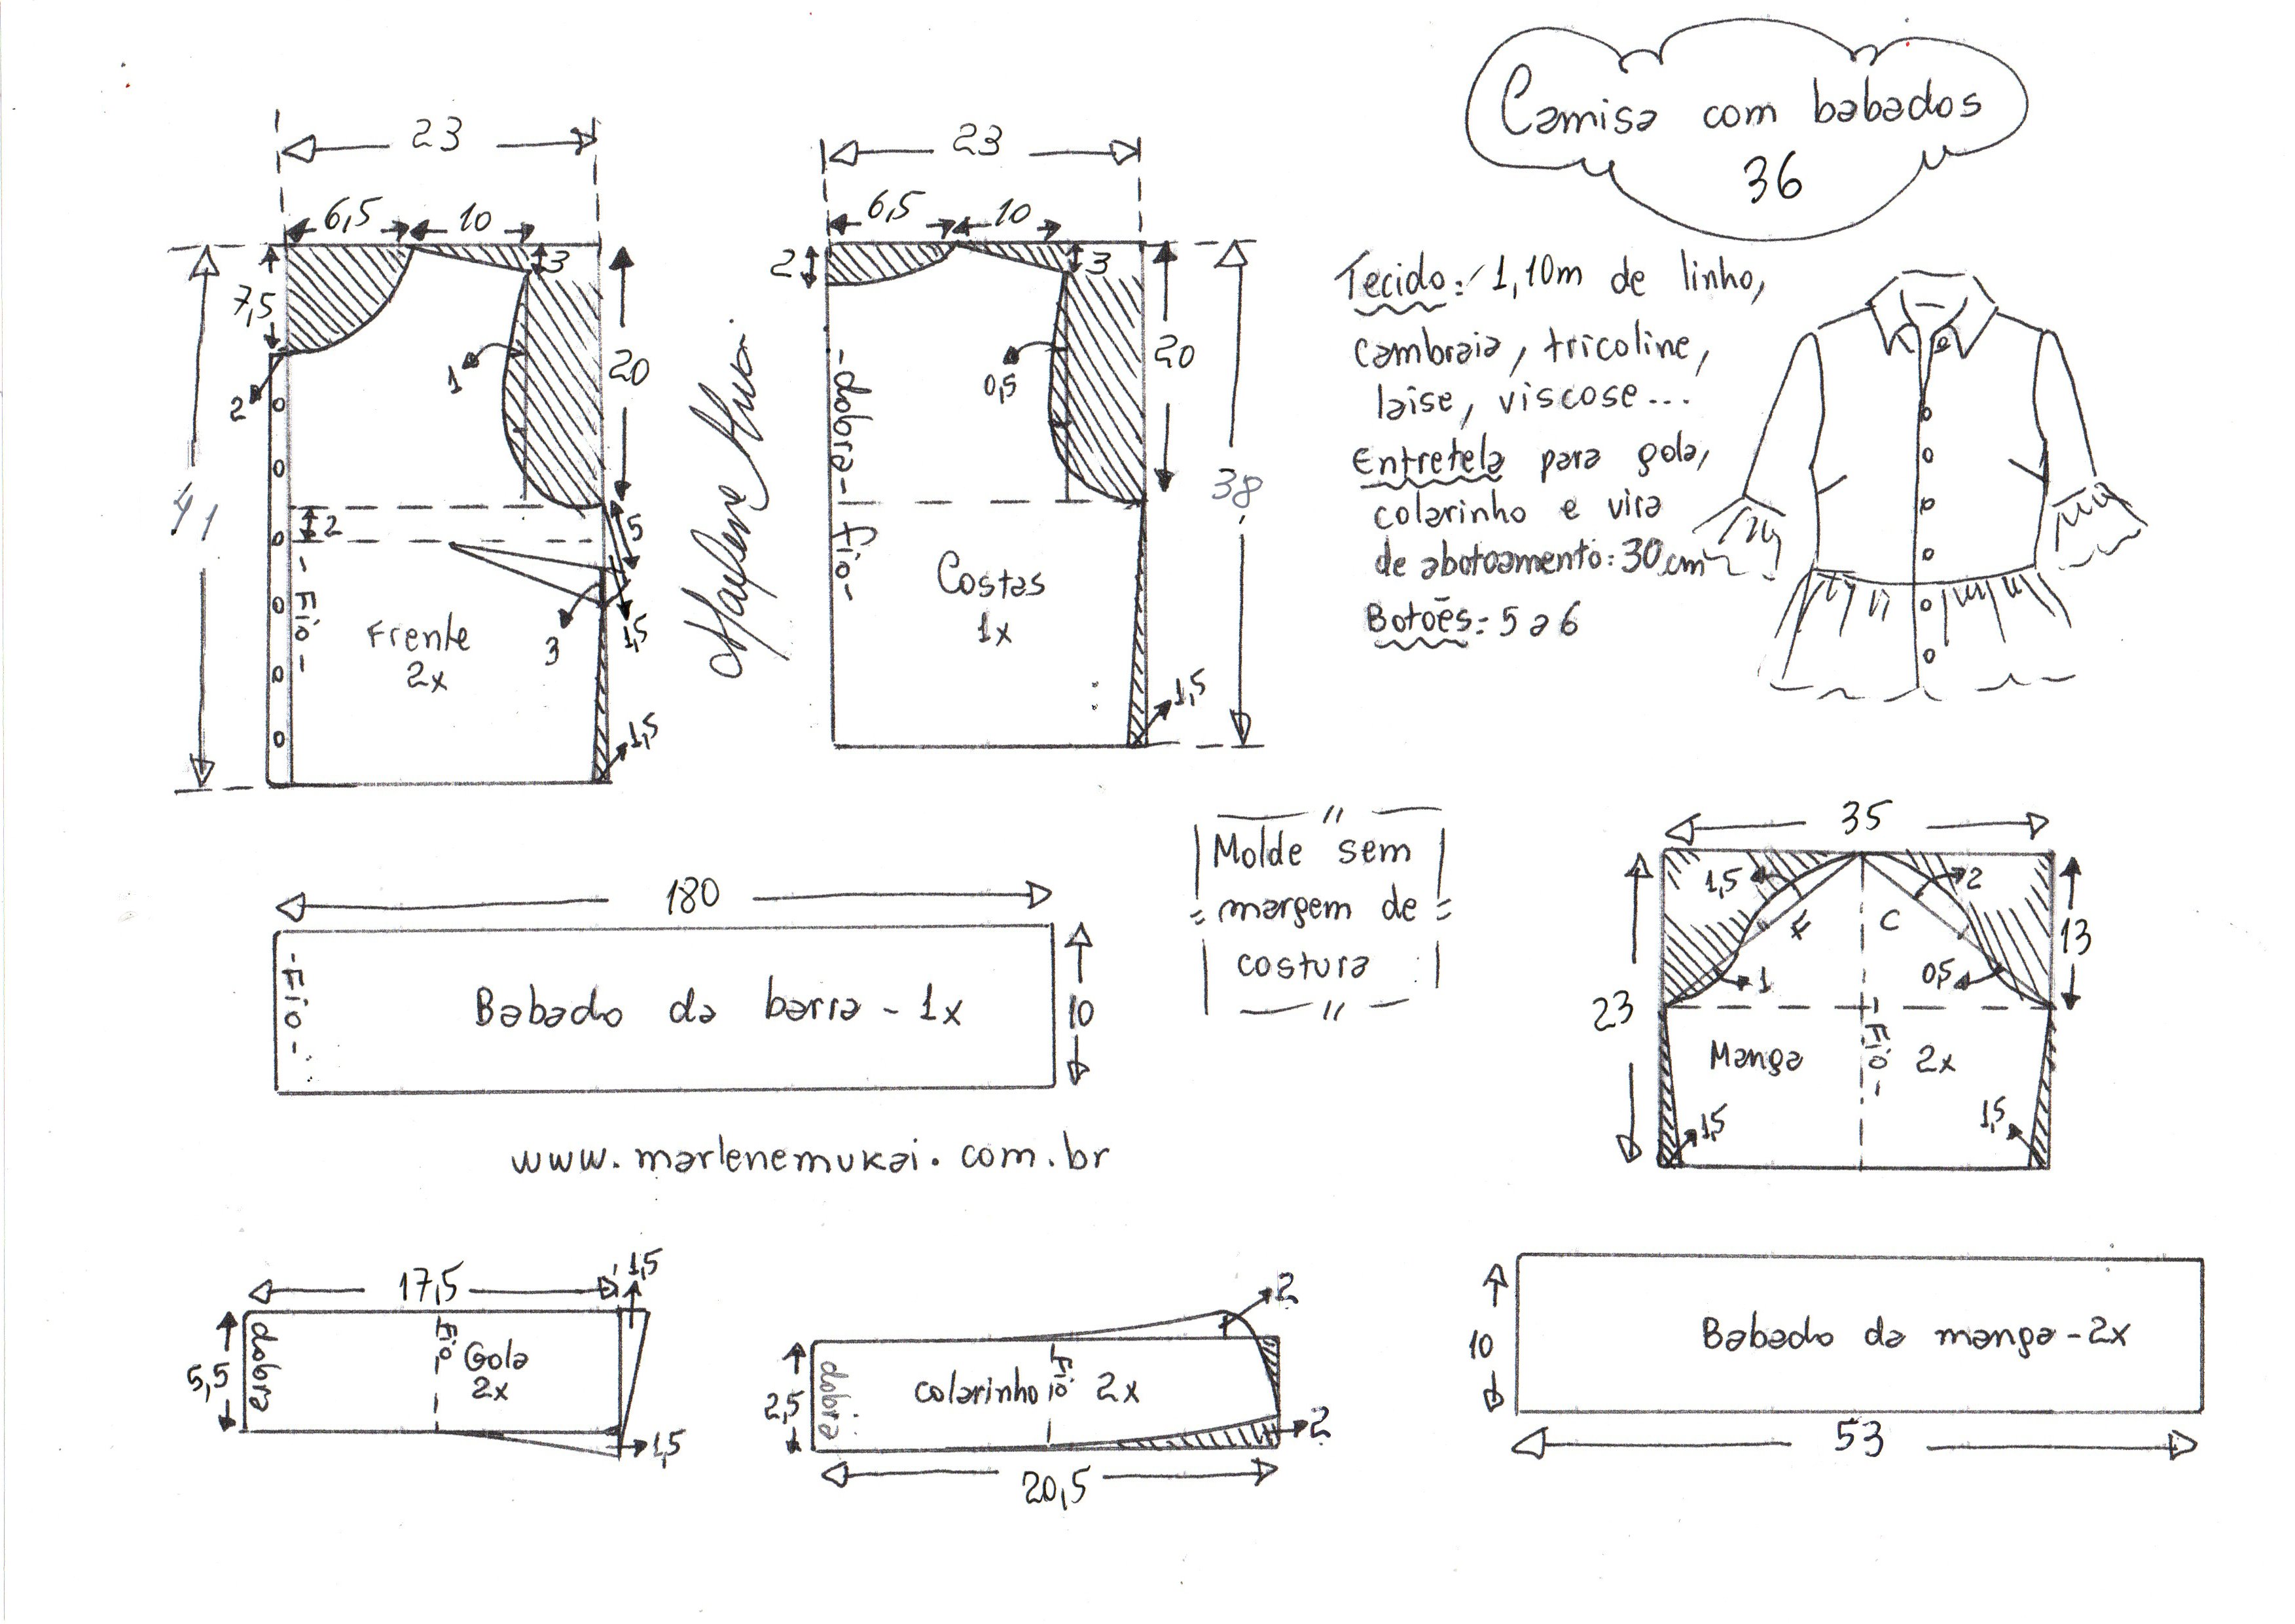 Camisa com babados
36
Tecido: 1,10m de linho,
cambraia, tricoline,
laise, viscose...
Entretela para gola,
colarinho e vira
de abotoamento: 30 cm
Botões: 5 a 6
23
6,5
10
3
7,5
2
1
20
41
2
5
1,5
3
1,5
-Fio-
Frente
2x
23
6,5
10
2
3
0,5
20
38
-dobra-
Fio-
Costas
1x
1,5
180
-Fio-
Babado da barra - 1x
10
www.marlenemukai.com.br
Molde sem
margem de
costura
35
1,5
2
F
C
13
1
0,5
23
Manga
-Fio-
2x
1,5
1,5
17,5
1,5
5,5
dobra
Fio
Gola
2x
1,5
2
2,5
dobra
colarinho
Fio
2x
2
20,5
10
Babado da manga - 2x
53